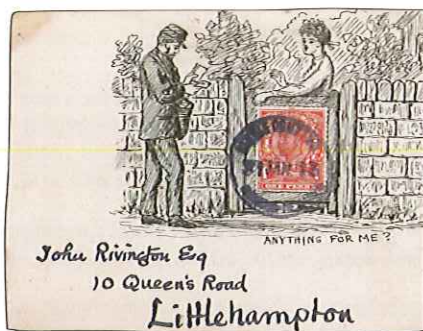 ONE PENNY
ANYTHING FOR ME?
John Rivington Esq
10 Queen's Road
Littlehampton